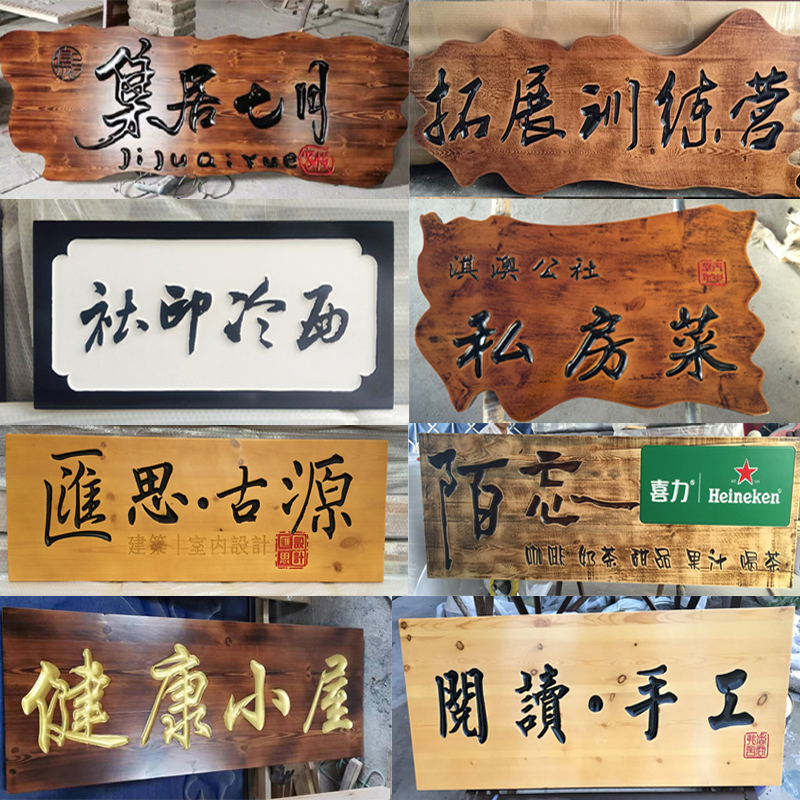 集居七月
JiJuQiYue
拓展训练营
社印冷西
淇澳公社
私房菜
匯思·古源
建築|室内設計
匯思設計
陌忘
喜力®
Heineken®
咖啡 奶茶 甜品 果汁 喝茶
健康小屋
閱讀·手工